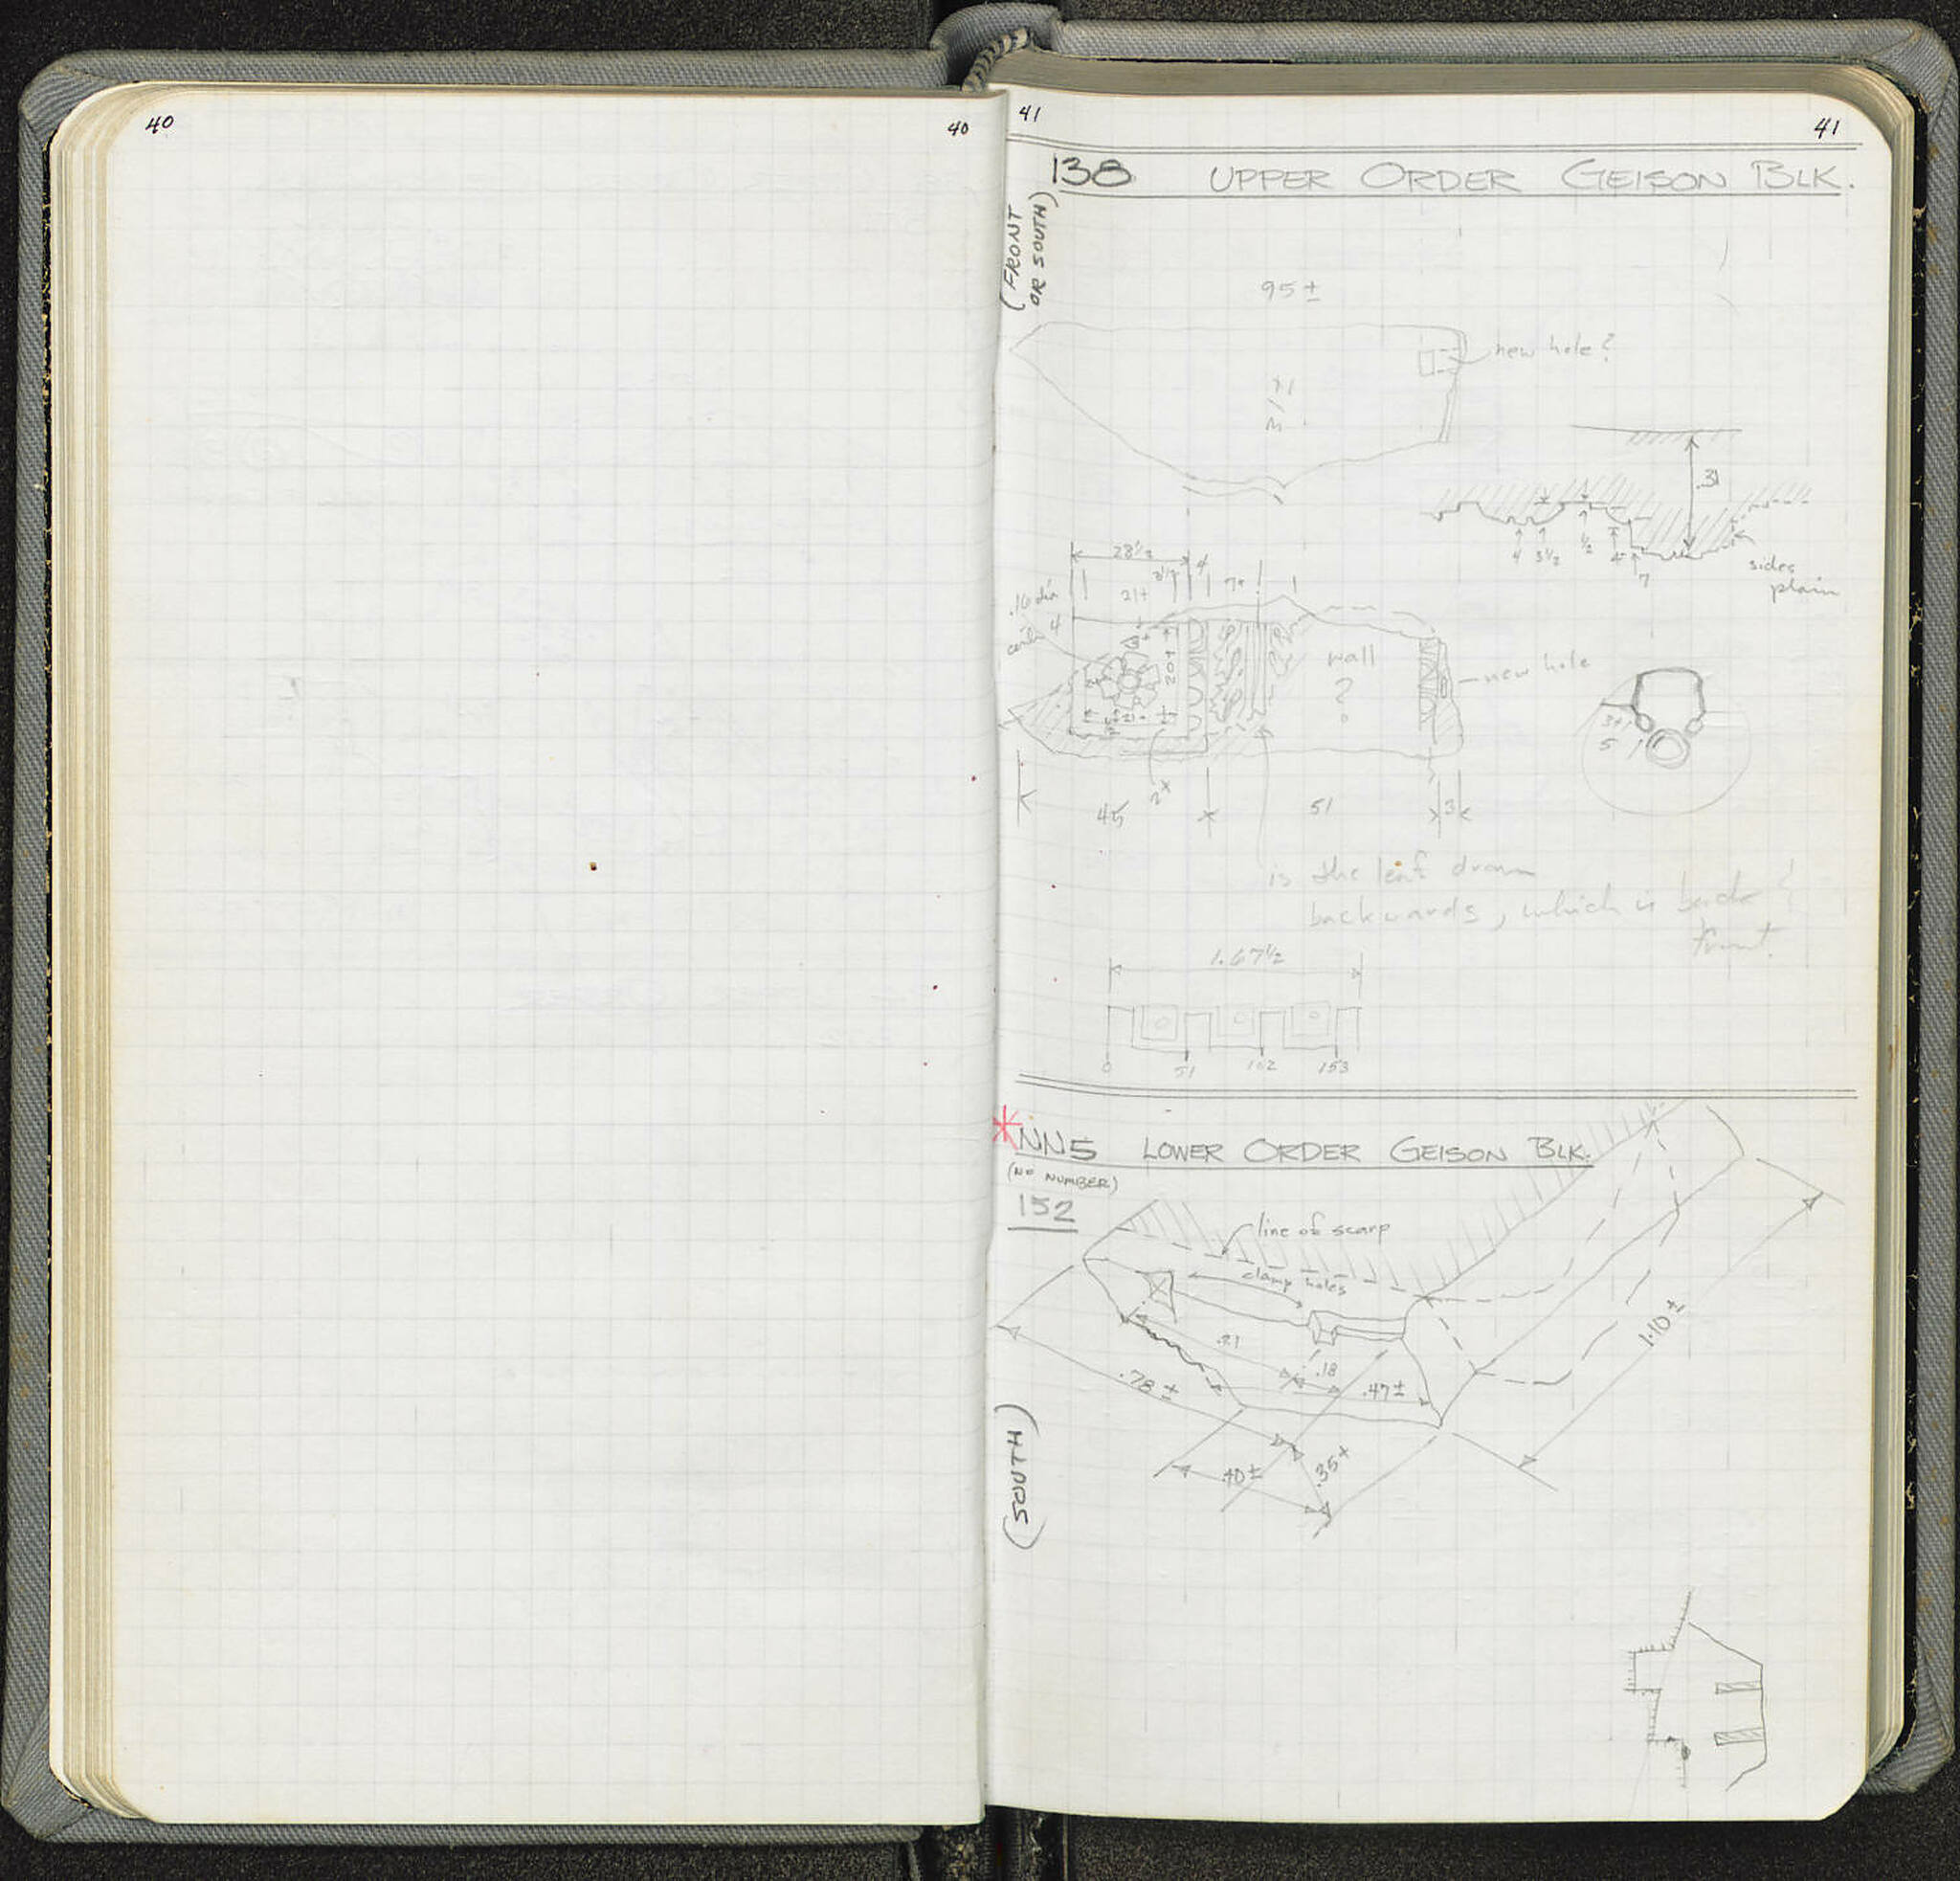 40
40
41
41
138 UPPER ORDER GEISON BLK.
(FRONT
OR SOUTH)
95±
new hole?
.31
4 3½ ½ 4 7
sides
plain
28½
3½ 4
21+
.16 dia
4
20+
wall
?
new hole
3+
5
2+
45
51
3
is the leaf drawn
backwards, which is back?
front
1.67½
0 51 102 153
*NN5 LOWER ORDER GEISON BLK.
(NO NUMBER)
152
line of scarp
clamp holes
.21
.18
.47±
.78±
1.10±
.40±
.35+
(SOUTH)